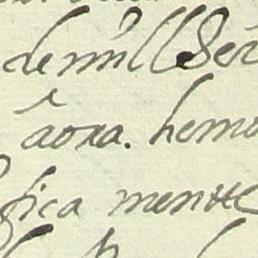 de mill Sei
aora. hemo
fica mentte